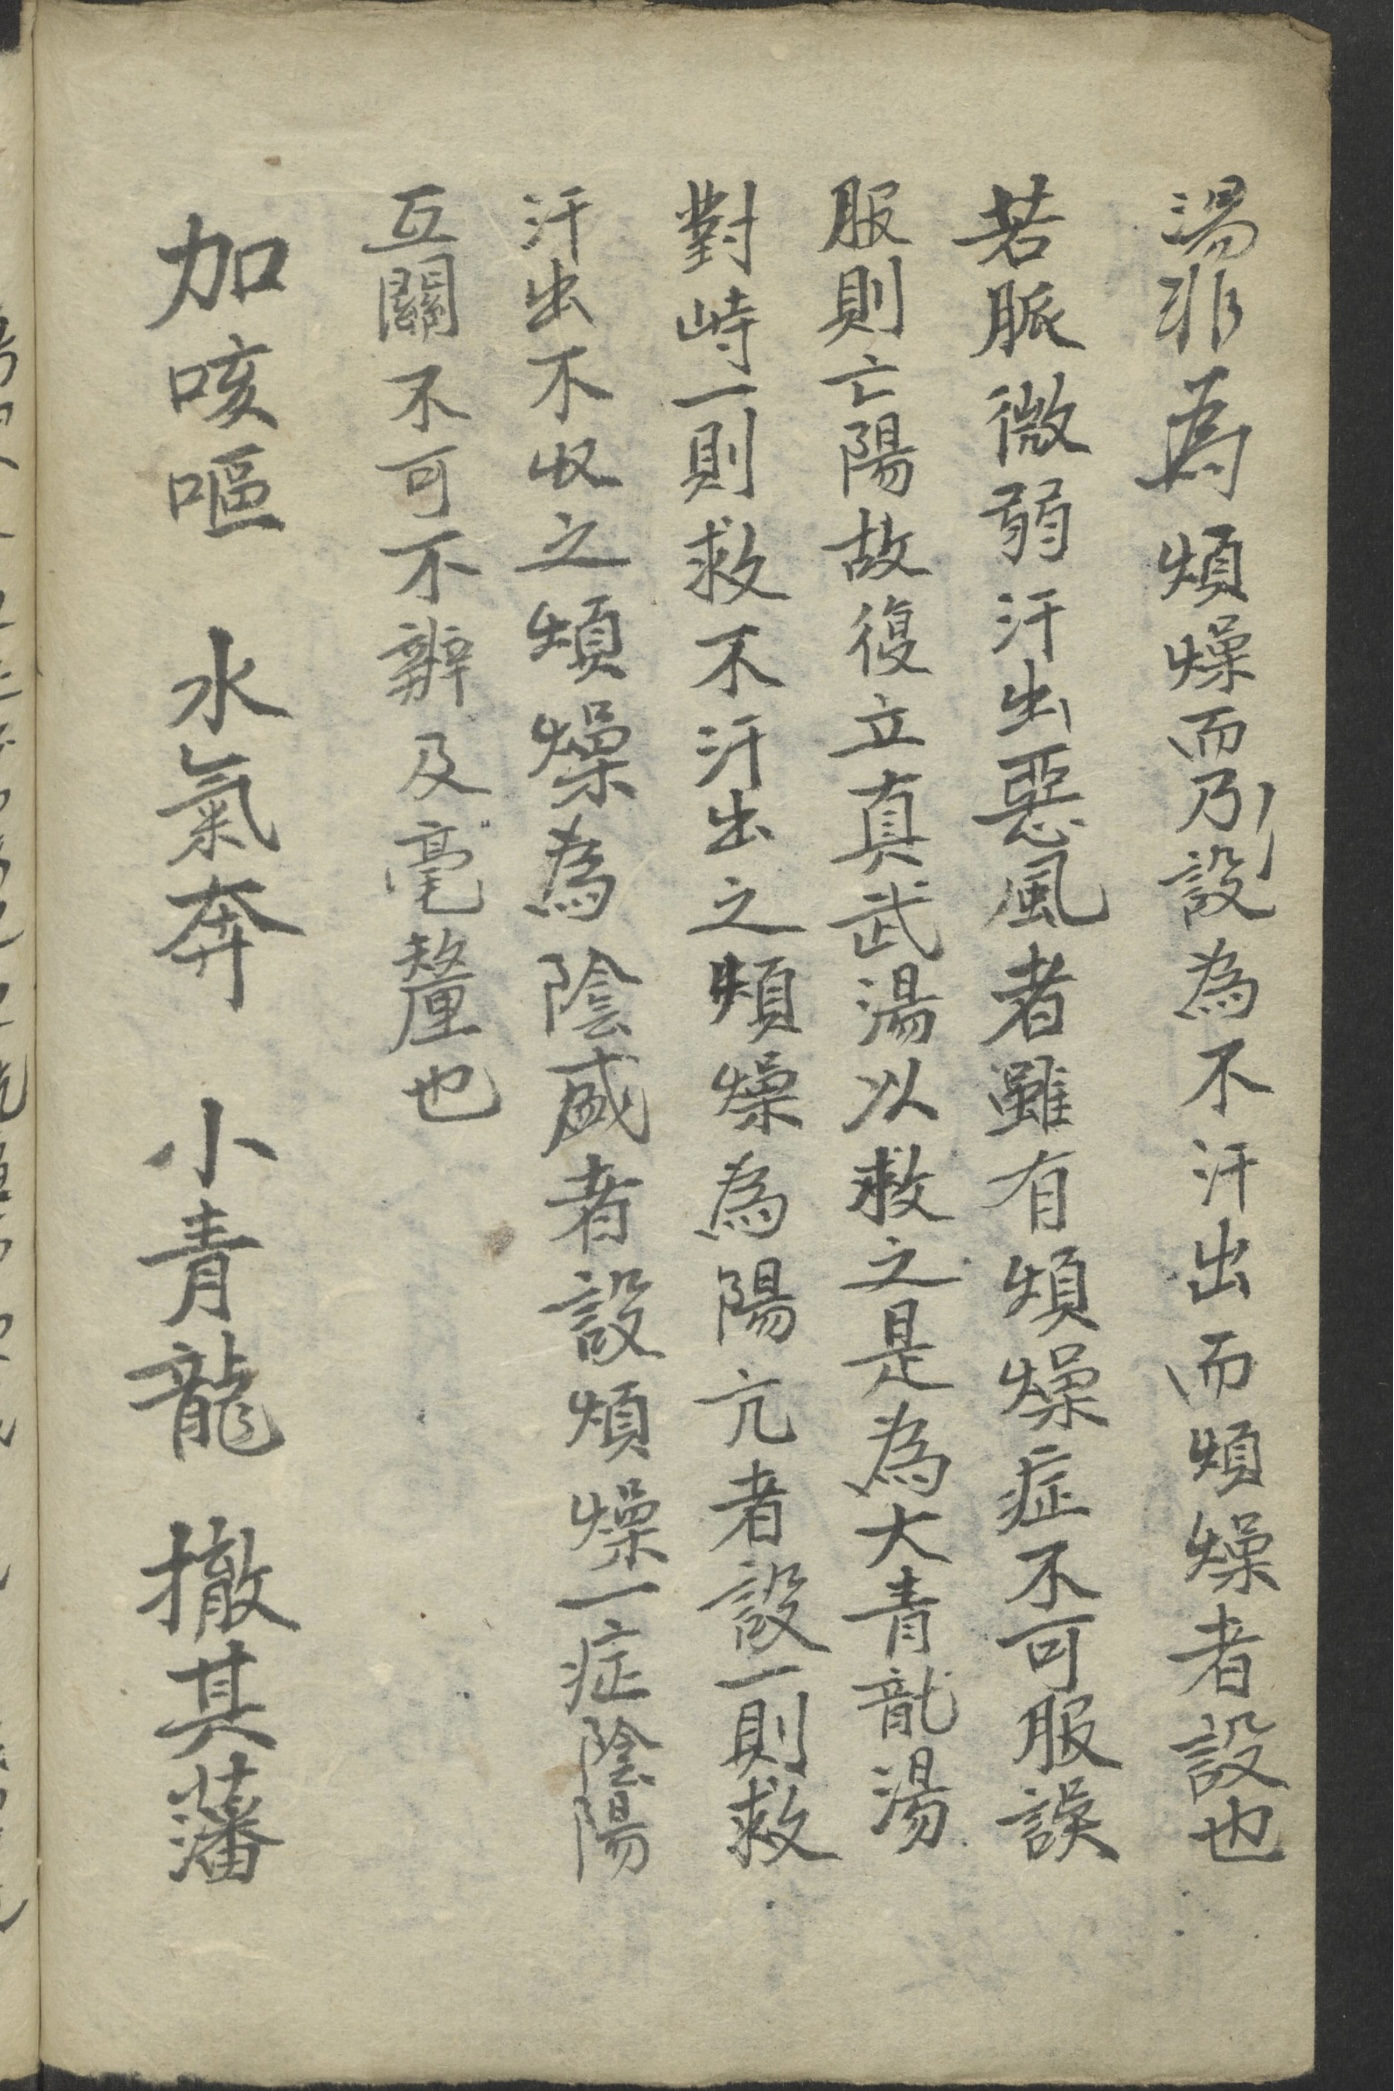 湯非為煩燥而乃設為不汗出而煩燥者設也
若脈微弱汗出惡風者雖有煩燥症不可服誤
服則亡陽故復立真武湯以救之是為大青龍湯
對峙一則救不汗出之煩燥為陽亢者設一則救
汗出不收之煩燥為陰盛者設煩燥一症陰陽
互關不可不辨及毫釐也
加咳嘔 水氣奔 小青龍 撤其藩